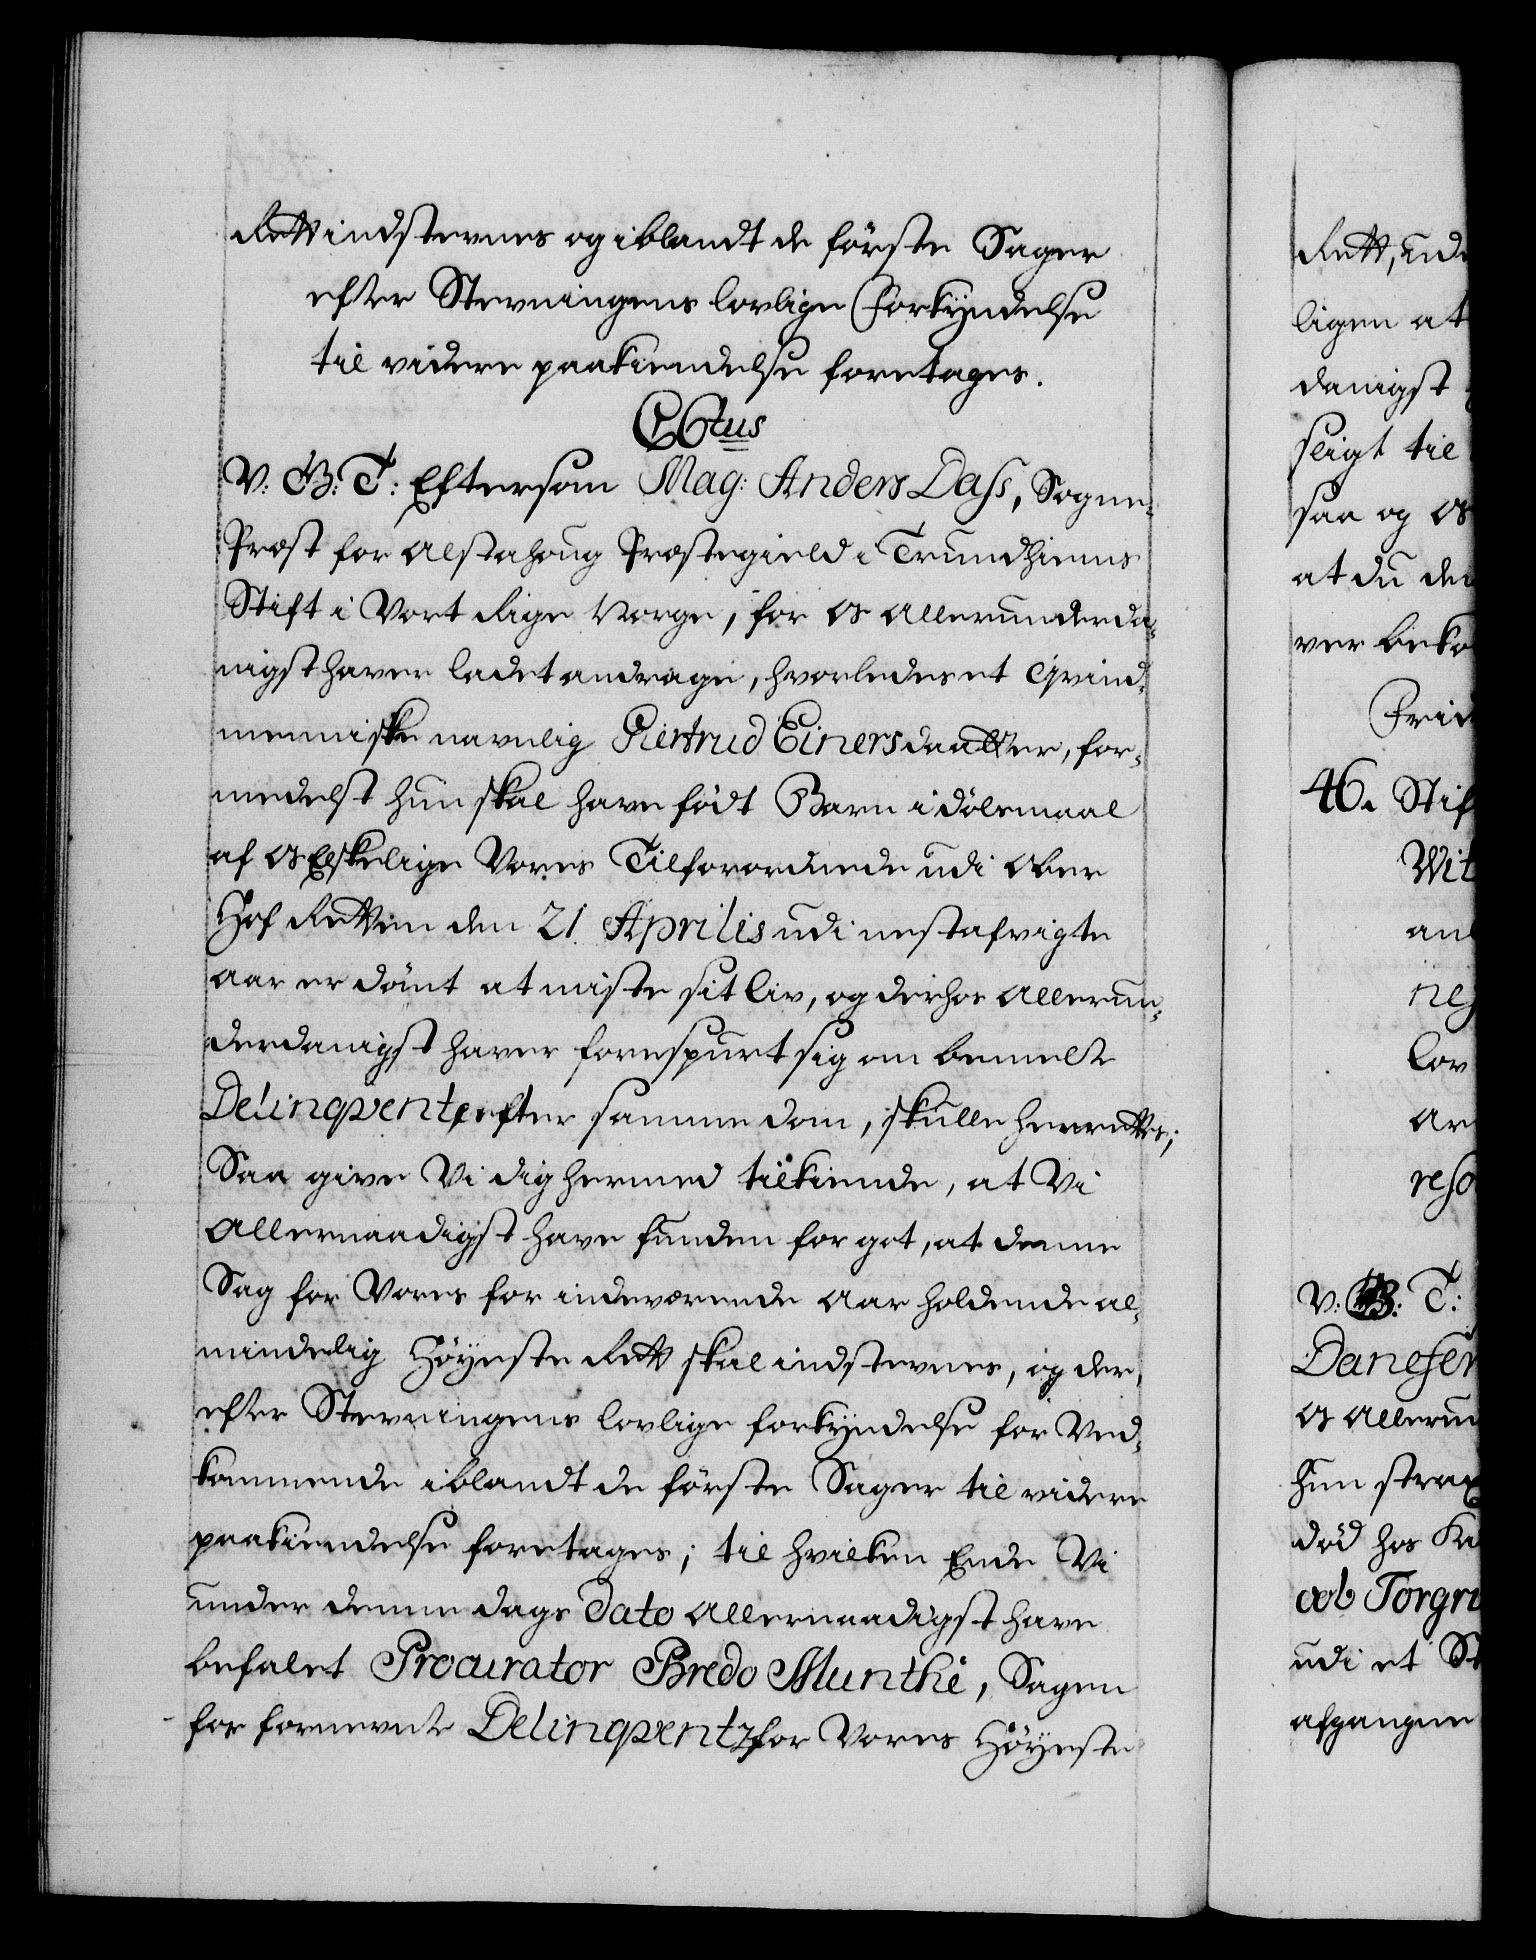 Rett indstevnes og iblandt de förste Sager
efter Stevningens lovlige Forkyndelse
til videre paakiendelse foretages.
V: G: T: Eftersom Mag: Anders Dass, Sogne-
Præst for Alstahoug Præstegield i Trundhiems
Stift i Vort Rige Norge, for Os Allerunderda-
nigst haver ladet andrage, hvorledes et Qvind-
menniske navnlig Giertrud Einersdaatter, for-
medelst hun skal have födt Barn i dölsmaal
af Os Elskelige Vores Tilforordnede udi Ober
Hof Retten den 21 Aprilis udi nestafvigte
Aar er dömt at miste sit liv, og derhos Allerun-
derdanigst haver forespurt sig om bemelte
Delinqvent efter samme dom, skulle henrettes;
Saa give Vi dig hermed tilkiende, at Vi
Allernaadigst have funden for got, at denne
Sag for Vores for indeværende Aar holdende al-
mindelig Höyeste Rett skal indstevnes, og der,
efter Stevningens lovlige forkyndelse for Ved-
kommende iblandt de förste Sager til videre
paakiendelse foretages; til hvilken Ende Vi
under denne dags Dato Allernaadigst have
befalet Procurator Bredo Munthe, Sagen
for fornevnte Delinqvent for Vores Höyeste
Rett, udi
ligen at
danigst
seigt til
saa og Os
at du den
ver beko
Frid
46. Stif
Wit
anl
nes
lov
Ar
reso
V: G: T:
Danefer
Os Allerun
hun strax
död hos Ka
cob Torgri
udi et St
afgangne